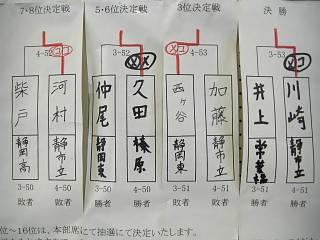 7・8位決定戦
5・6位決定戦
3位決定戦
決勝
4-52
メコ
3-52
メメ
メコ
4-53
3-53
コ
柴戸
河村
仲尾
久田
西ヶ谷
加藤
井上
川崎
静岡高
静市立
静岡東
榛原
静岡東
静市立
常葉橘
静市立
3-50
4-50
3-50
4-50
3-51
4-51
3-51
4-51
敗者
敗者
勝者
勝者
敗者
敗者
勝者
勝者
位～16位は、本部席にて抽選にて決定いたします。